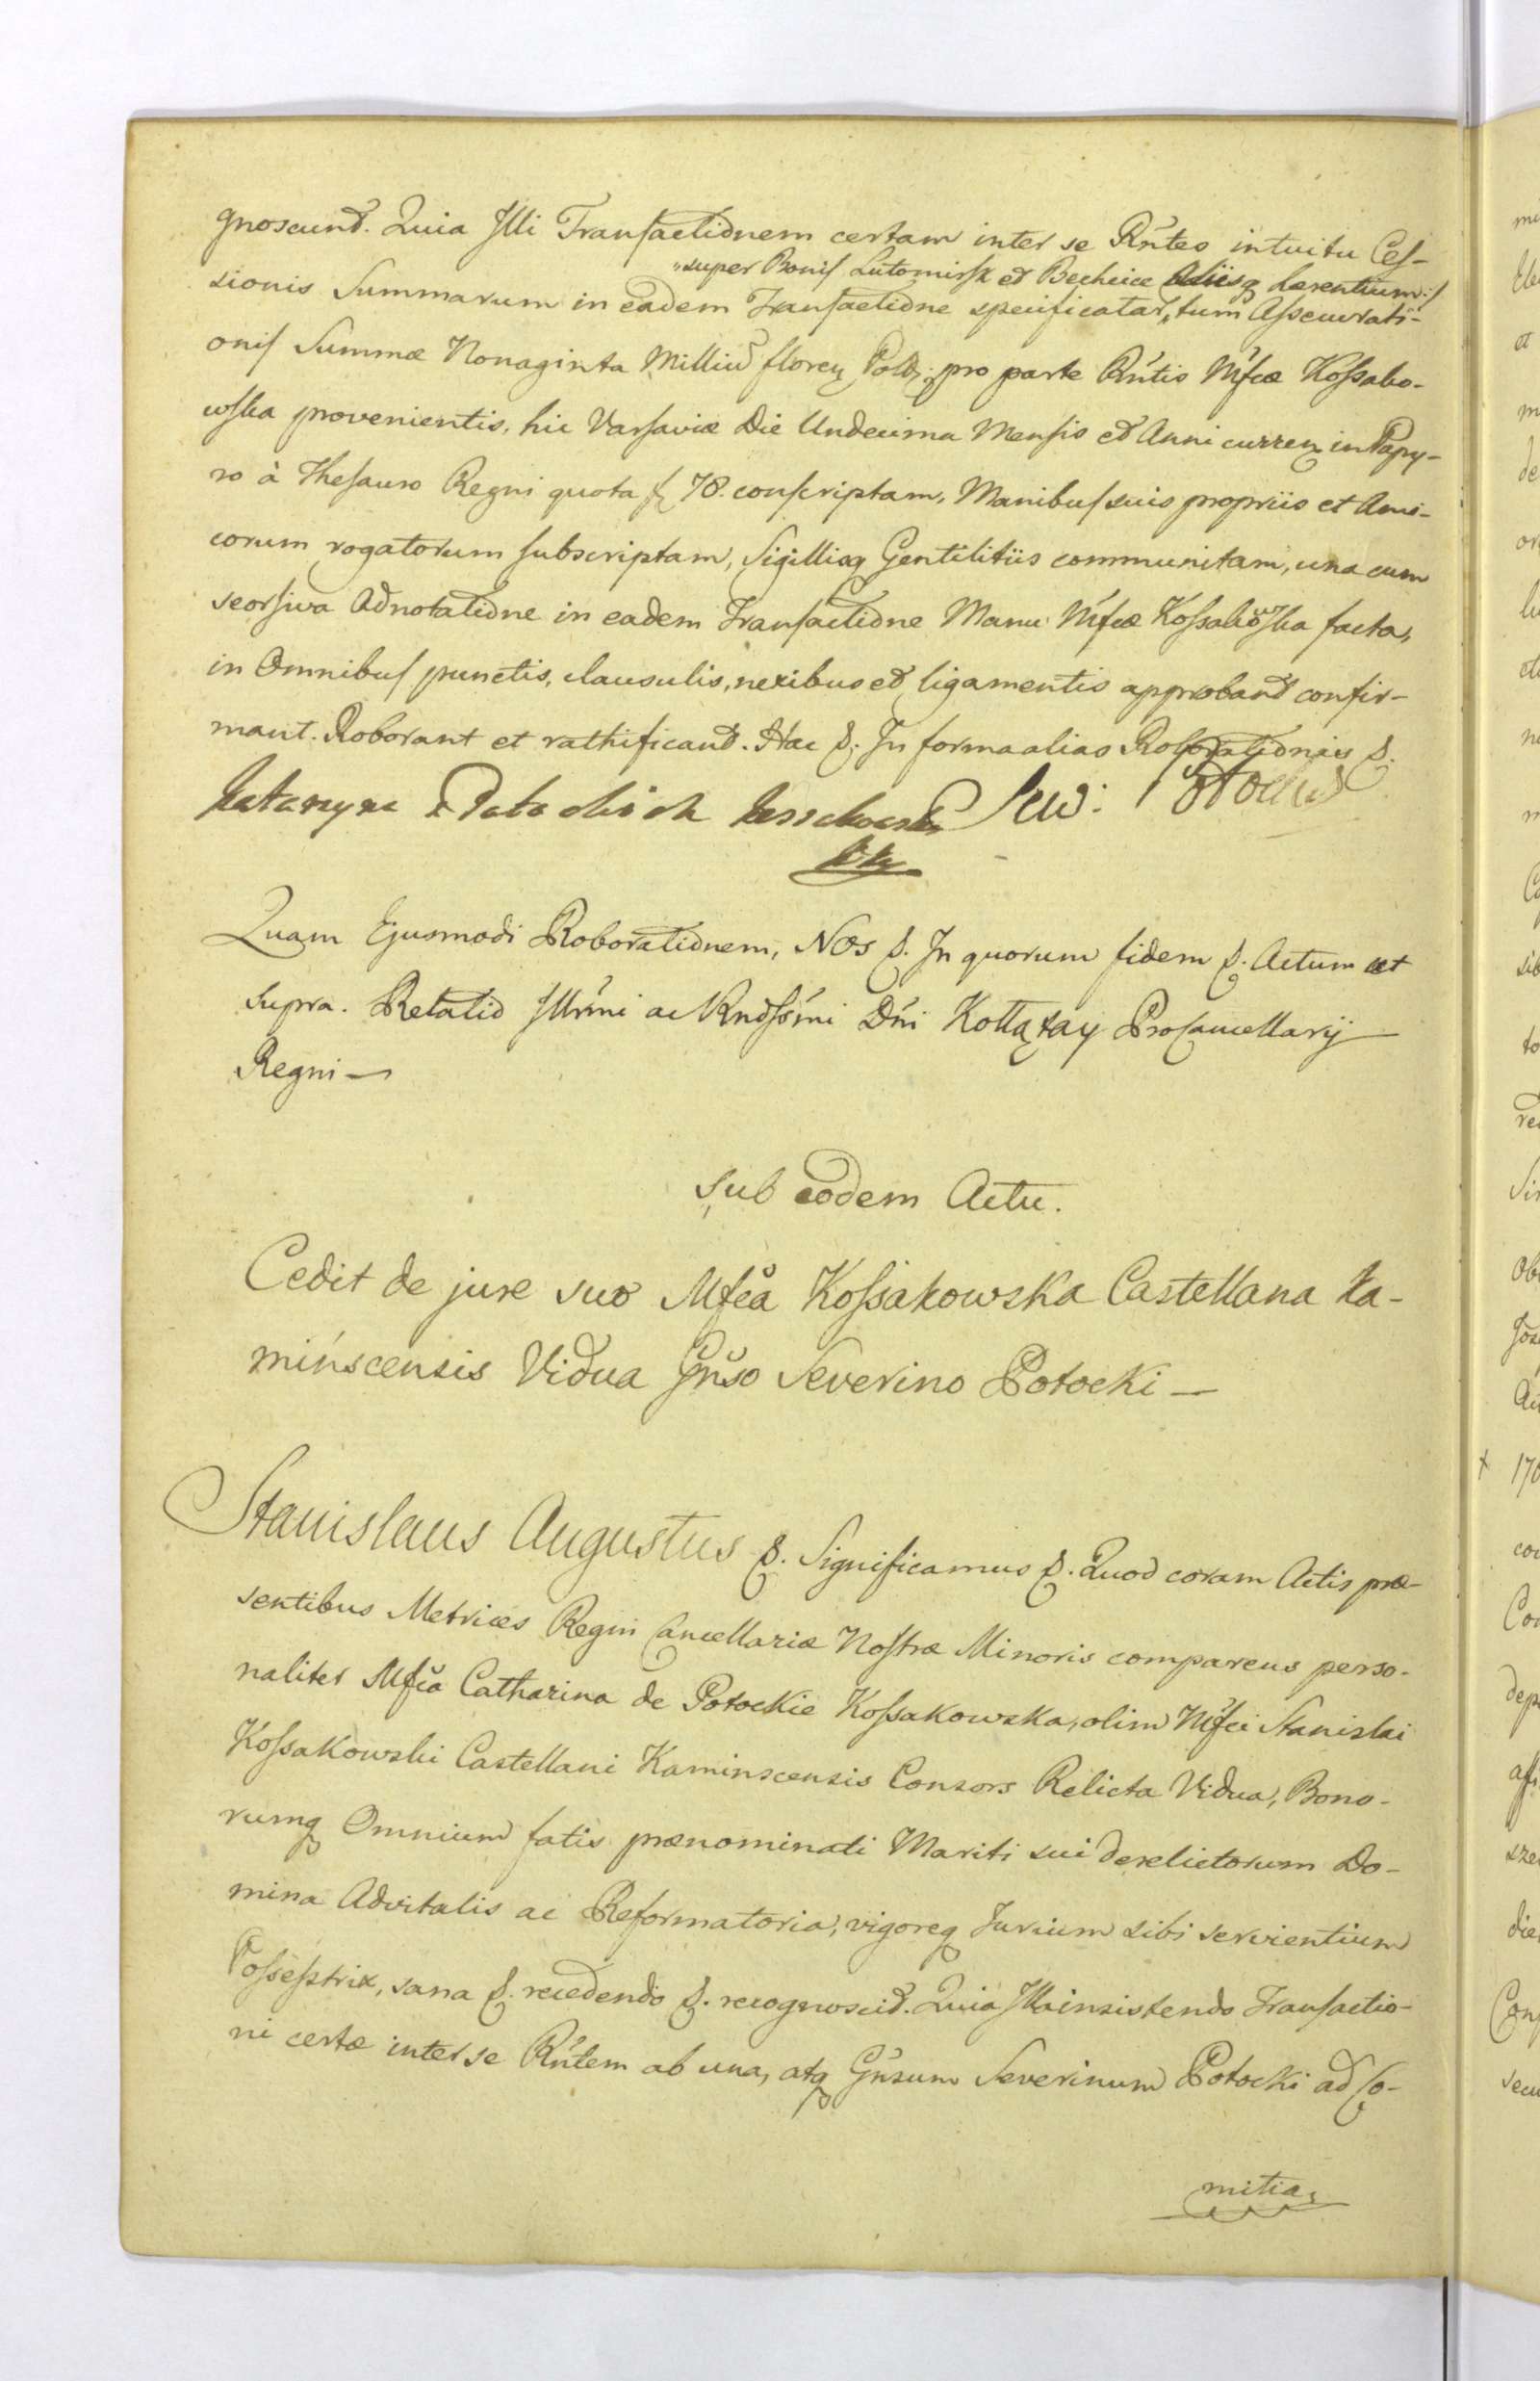 gnoscunt. Quia Illi Transactionem certam inter se Rńtes intuitu Ces-
super Bonis Lutomirsk et Bechcice Aliisq haerentium
sionis Summarum in eadem Transactione specificatar, tum Assecurati-
onis Summæ Nonaginta Milliu floren Pold: pro parte Rńtis Mfcæ Kossako-
wska provenientis, hic Varsaviæ Die Undecima Mensis et Anni curren in Papy-
ro à Thesauro Regni quota f 78. conscriptam, Manibus suis propriis et Ami-
corum rogatorum subscriptam, Sigillisq Gentilitiis communitam, una cum
seorsiva Adnotatione in eadem Transactione Manu Mfcæ Kossakowska facta,
in Omnibus punctis, clausulis, nexibus et ligamentis approbant confir-
mant. Roborant et rathificant. Hac &. In forma alias Roborationis &.
Katarzyna z Potockich Kossakowska Sew: Potocki
Quam Ejusmodi Roborationem, Nos &. In quorum fidem &. Actum ut
supra. Relatio Illrmi ac Rndssmi Dńi Kołłątay ProCancellarij
Regni —
Sub eodem Actu.
Cedit de jure suo Mfca Kossakowska Castellana Ka-
mińscensis Vidua Gńso Severino Potocki —
Stanislaus Augustus &. Significamus &. Quod coram Actis præ-
sentibus Metrices Regni Cancellariæ Nostræ Minoris comparens perso-
naliter Mfca Catharina de Potockie Kossakowska, olim Mfci Stanislai
Kossakowski Castellani Kaminscensis Consors Relicta Vidua, Bono-
rumq Omnium fatis prænominati Mariti sui derelictorum Do-
mina Advitalis ac Reformatoria, vigoreq Jurium sibi servientium
Possesstrix, sana &. recedendo &. recognoscit. Quia Illa insistendo Transactio-
ni certæ inter se Rńtem ab una, atq Gńsum Severinum Potocki ad Co-
mitia,